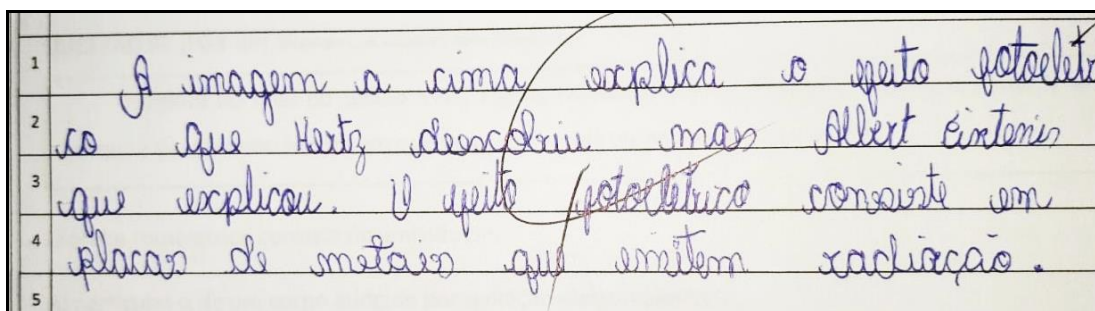 1 A imagem a cima explica o efeito fotoelétri
2 co que Hertz descobriu mas Albert Eintenis
3 que explicou. O efeito fotoeletrico consiste em
4 placas de metaes que emitem radiação.
5